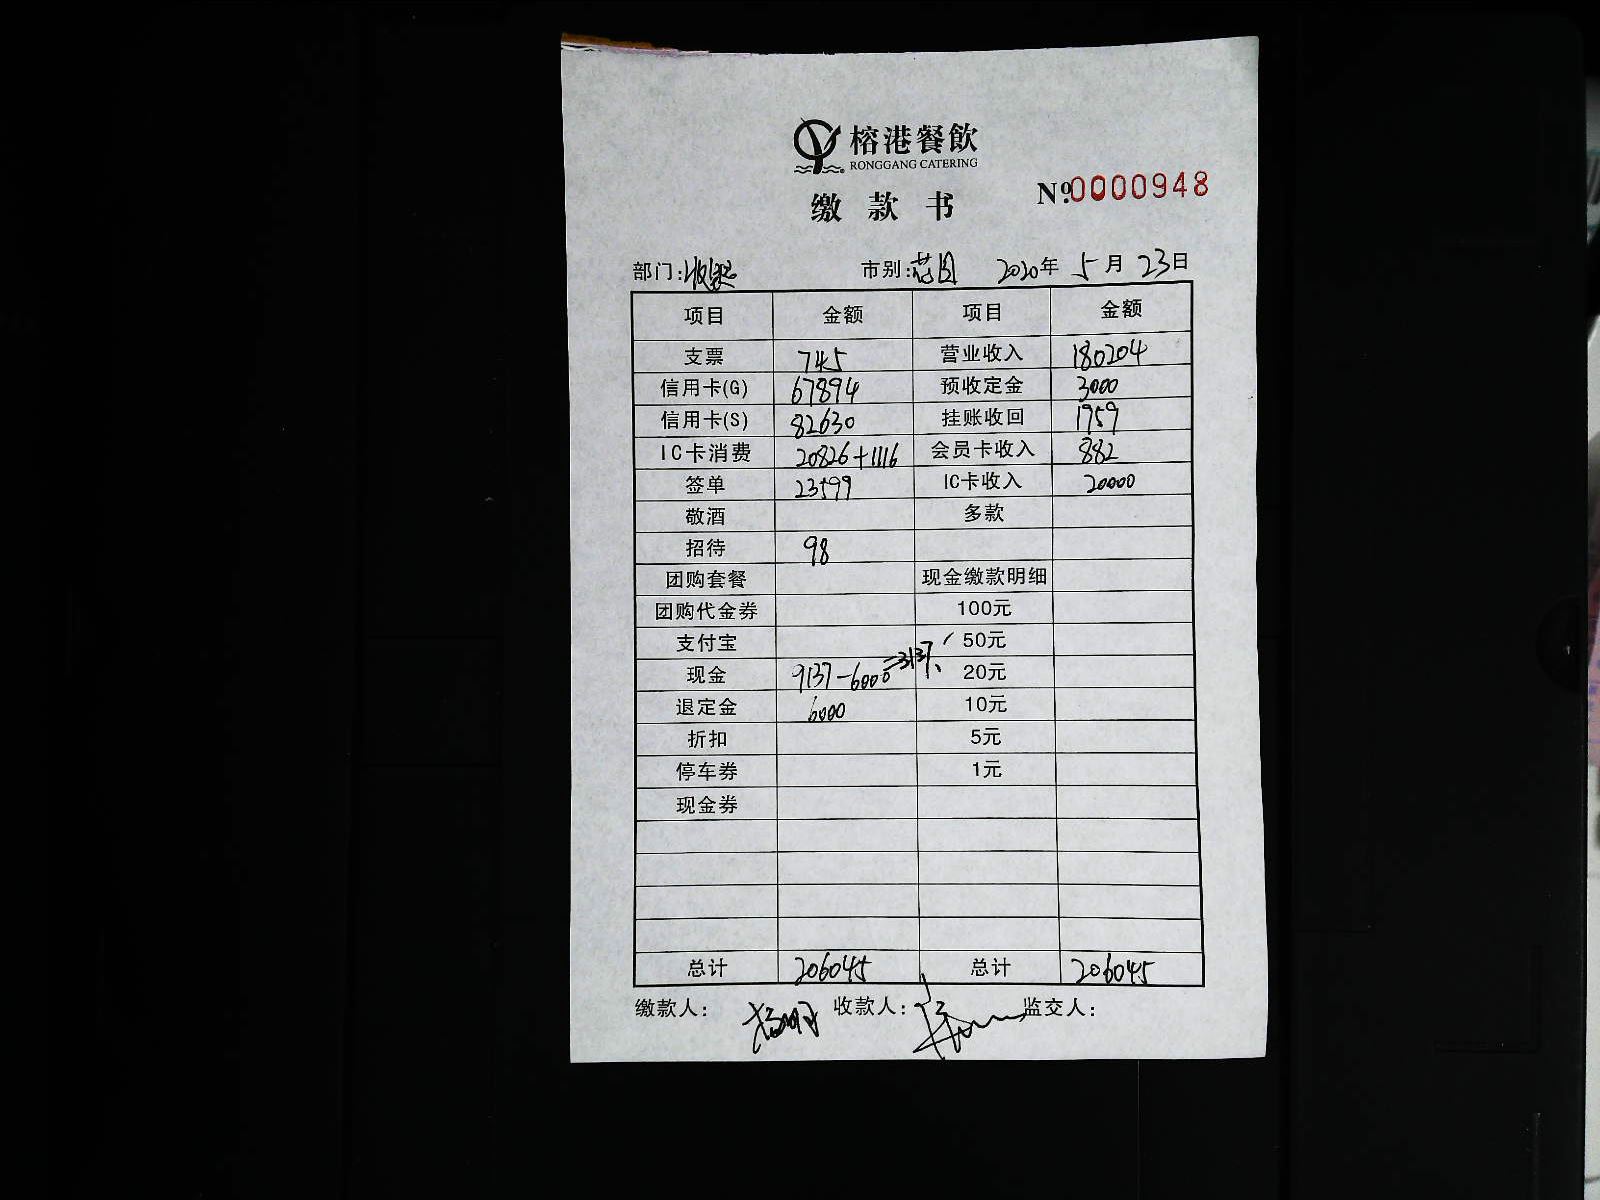 榕港餐飲
RONGGANG CATERING
缴款书
№0000948
部门:收银 市别:花园 2020年5月23日
项目 金额 项目 金额
支票 745 营业收入 180204
信用卡(G) 67894 预收定金 3000
信用卡(S) 82630 挂账收回 1959
IC卡消费 20826+1116 会员卡收入 882
签单 23599 IC卡收入 20000
敬酒 多款
招待 98
团购套餐 现金缴款明细
团购代金券 100元
支付宝 50元
现金 9137-6000=3137 20元
退定金 6000 10元
折扣 5元
停车券 1元
现金券
总计 206045 总计 206045
缴款人: 收款人: 监交人: